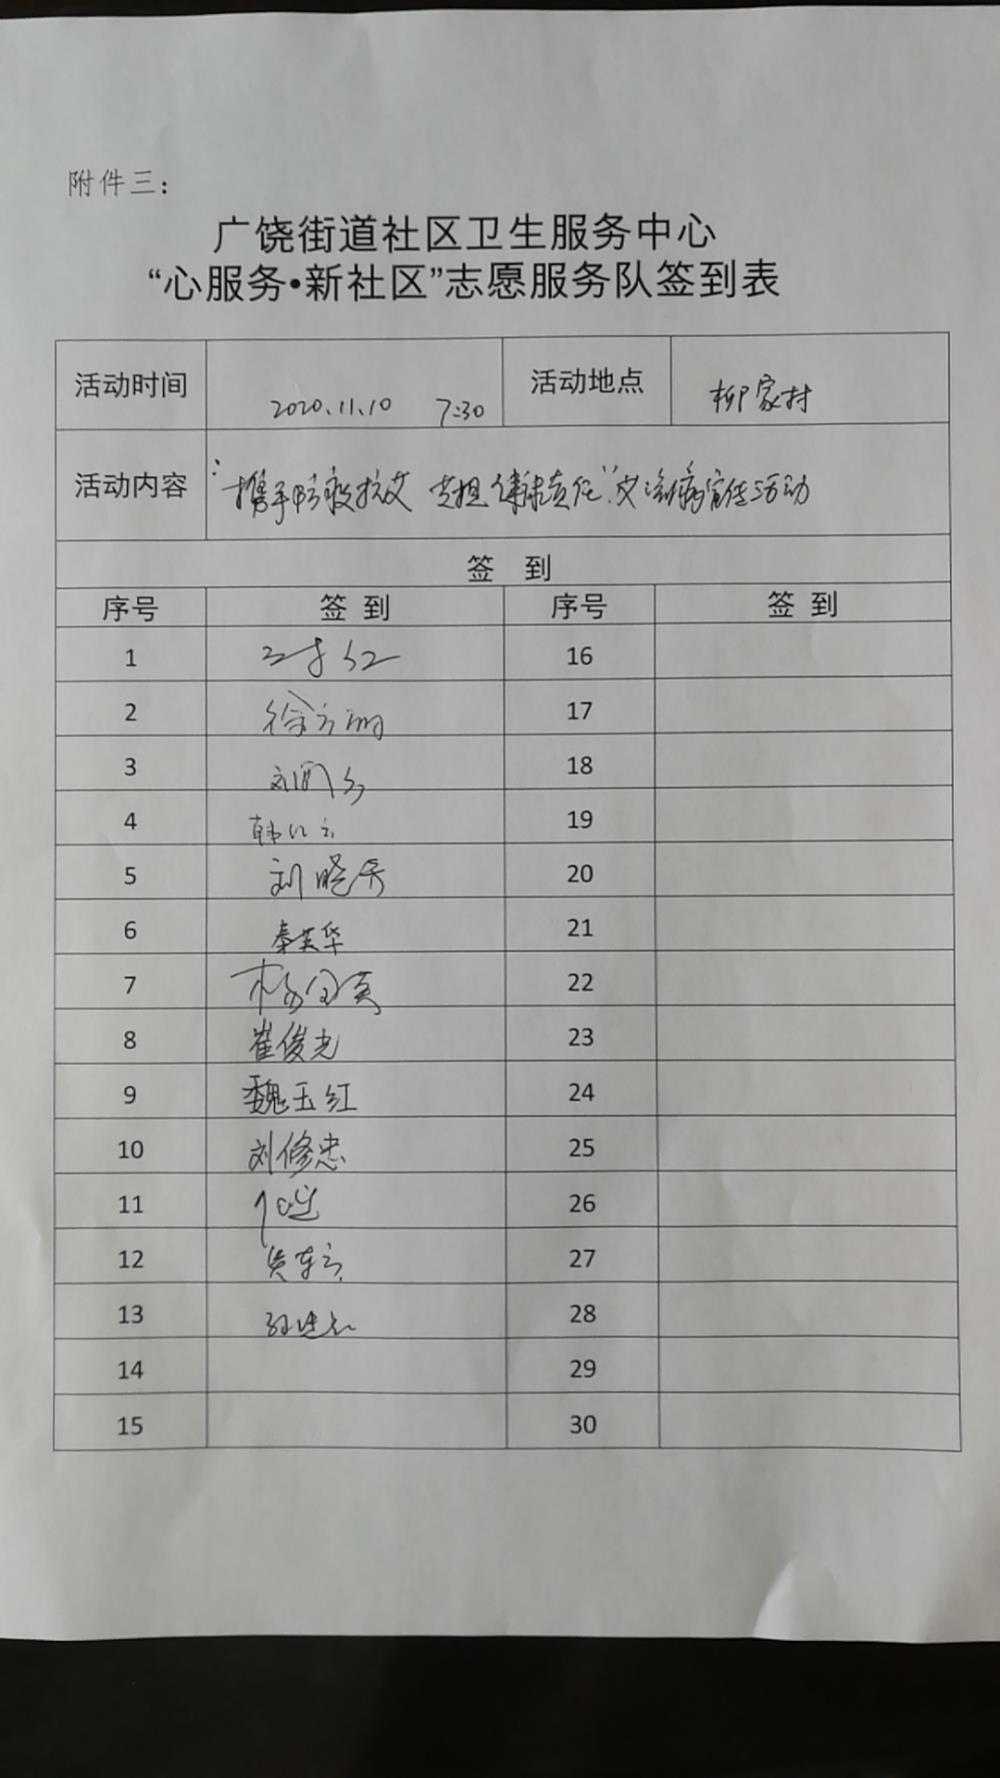 附件三：
广饶街道社区卫生服务中心
“心服务•新社区”志愿服务队签到表
活动时间 2020.11.10 7:30 活动地点 柳家村
活动内容 “携手防疫抗艾 共担健康责任”艾滋病宣传活动
签 到
序号 签到 序号 签到
1 16
2 徐 17
3 刘 18
4 韩 19
5 刘晓 20
6 秦英华 21
7 杨 22
8 崔俊光 23
9 魏玉红 24
10 刘修忠 25
11 26
12 27
13 28
14 29
15 30